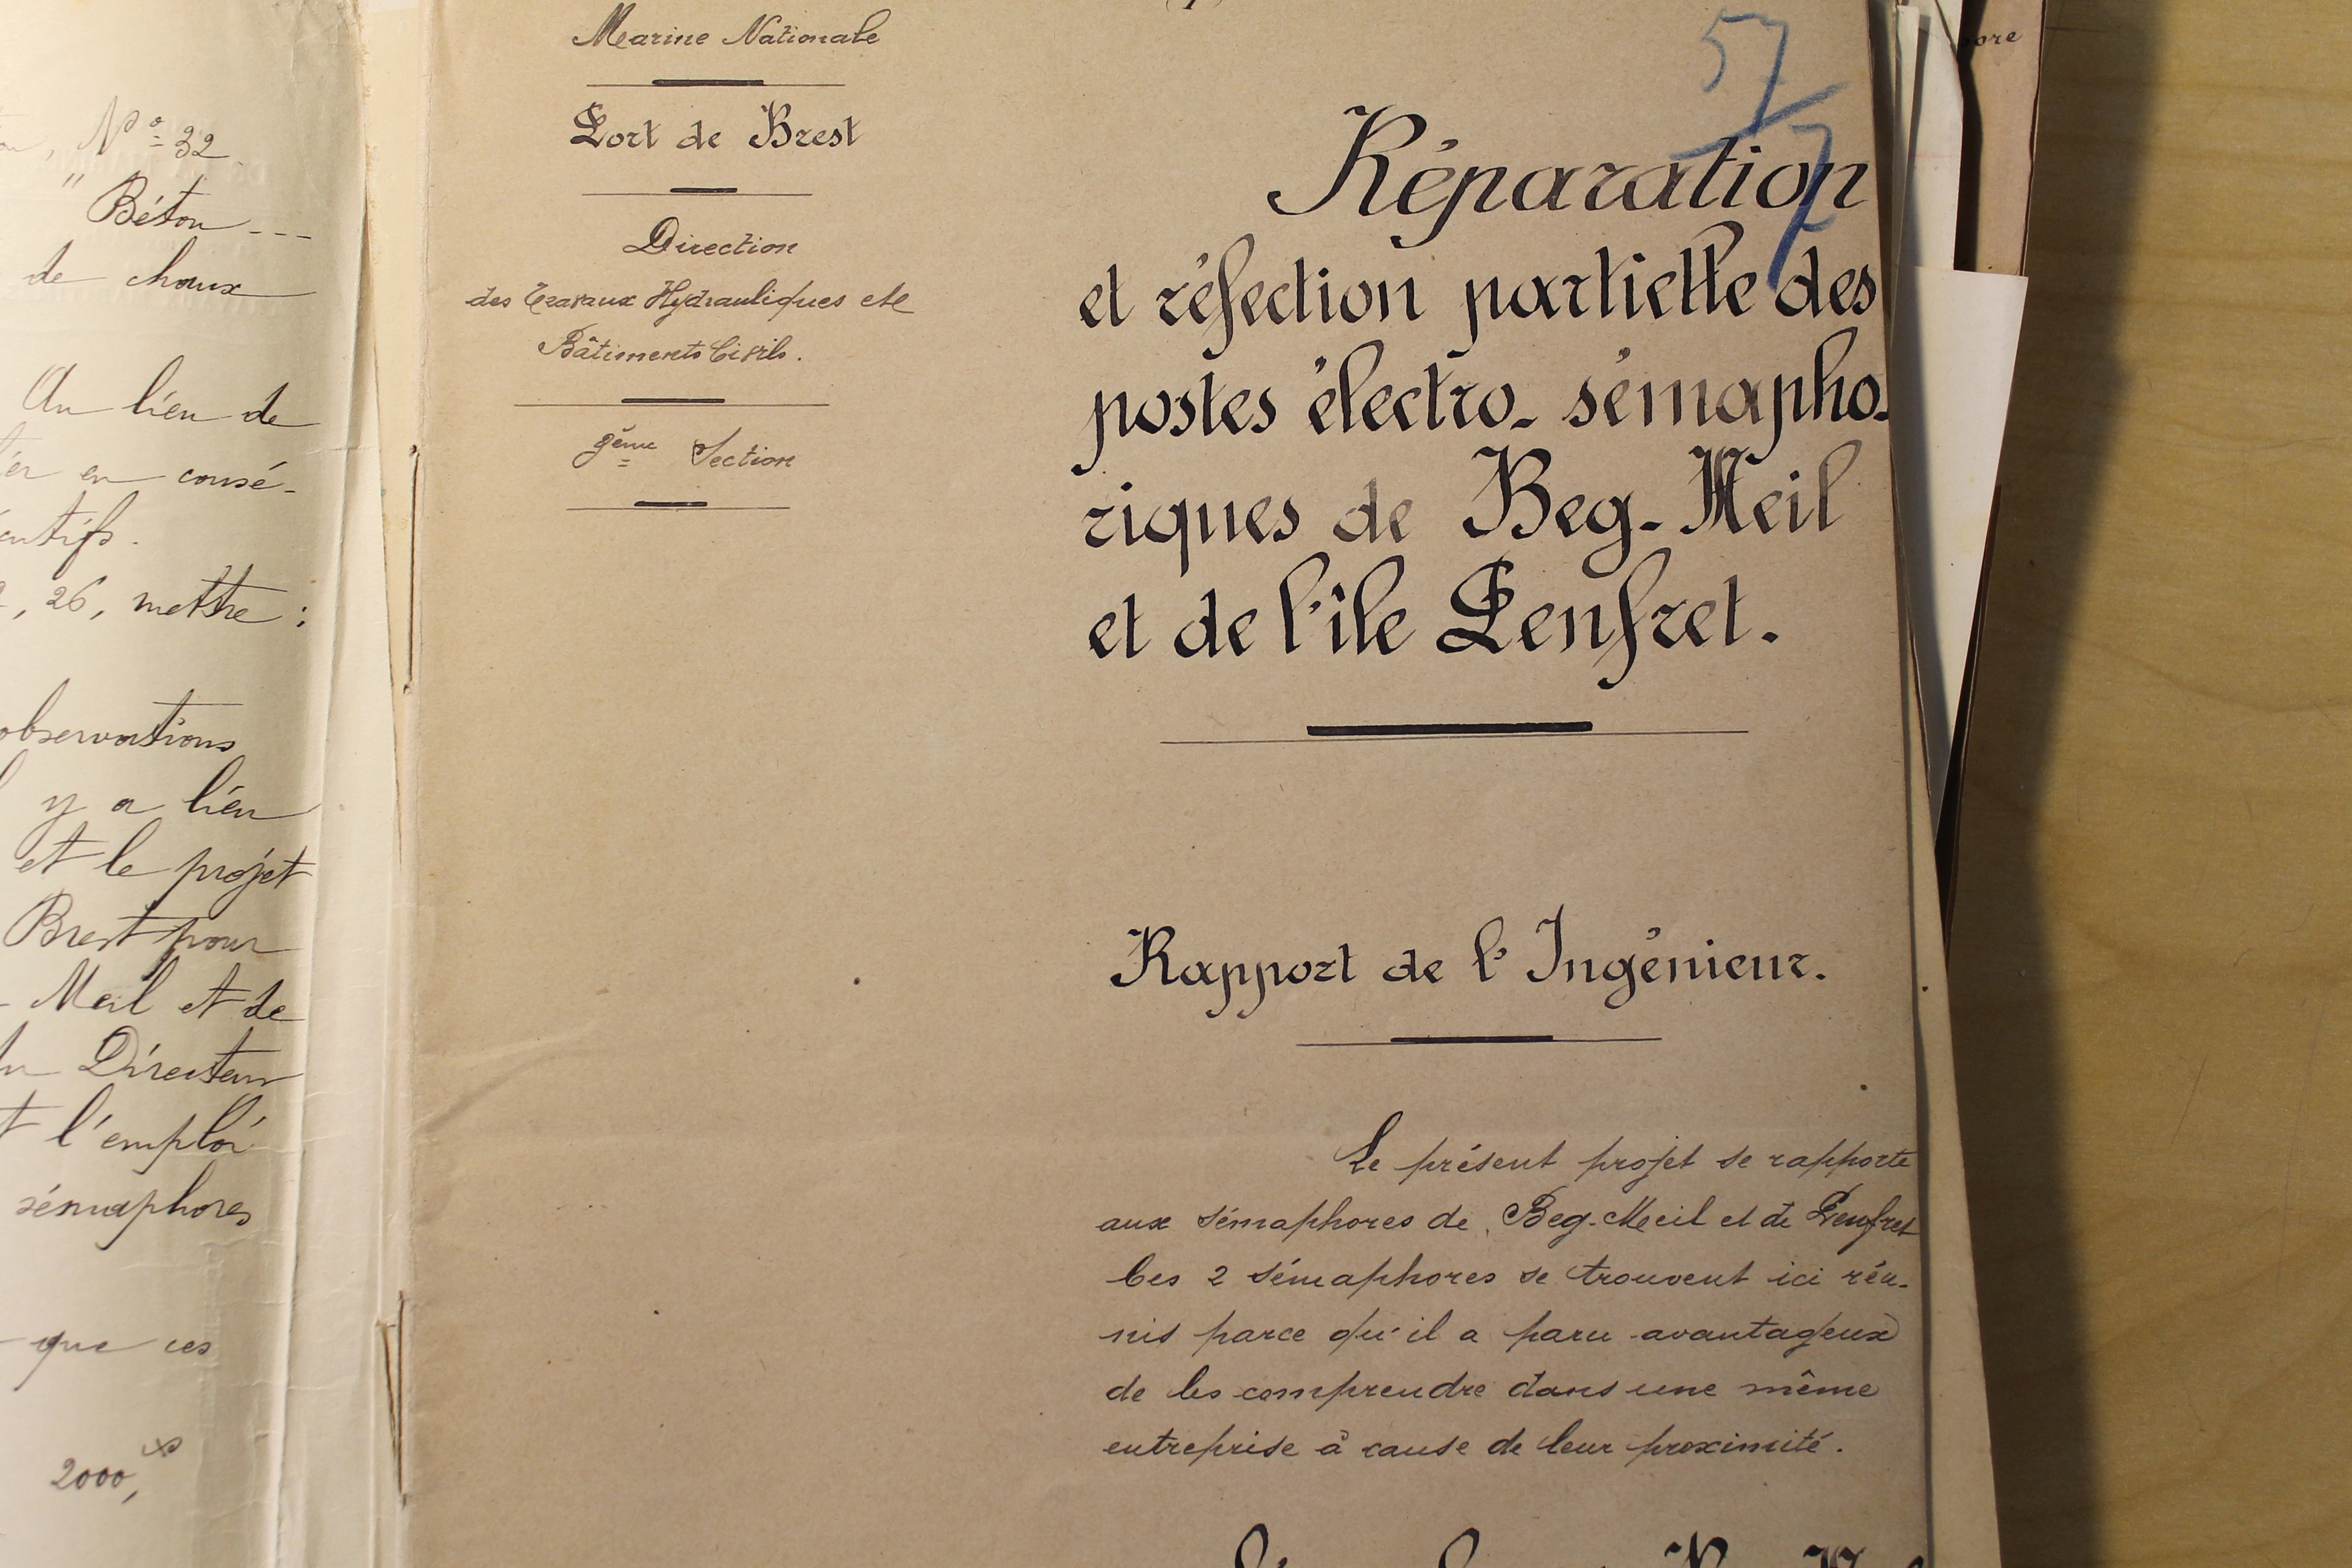 Nº 32.
" Béton ---
de chaux
Au lieu de
en consé-
26, mettre :
observations
y a lieu
et le projet
Brest pour
Meil et de
Directeur
l'emploi
sémaphores
que ces
2000,
Marine Nationale
Port de Brest
Direction
des Travaux Hydrauliques et
Bâtiments Civils.
Section
57
7
Réparation
et réfection partielle des
postes électro-sémapho-
riques de Beg-Meil
et de l'île Penfret.
Rapport de l'Ingénieur.
Le présent projet se rapporte
aux sémaphores de Beg-Meil et de Penfret
Ces 2 sémaphores se trouvent ici réu-
nis parce qu'il a paru avantageux
de les comprendre dans une même
entreprise à cause de leur proximité.